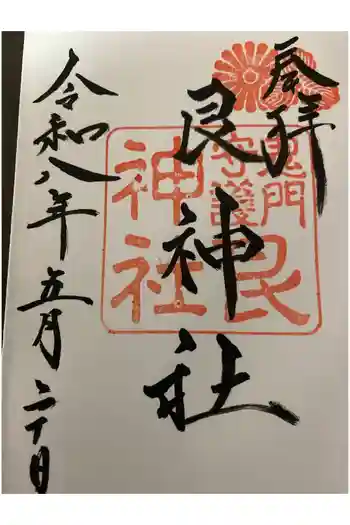 奉拝
艮神社
令和八年五月二十日
鬼門
守護
艮
神社